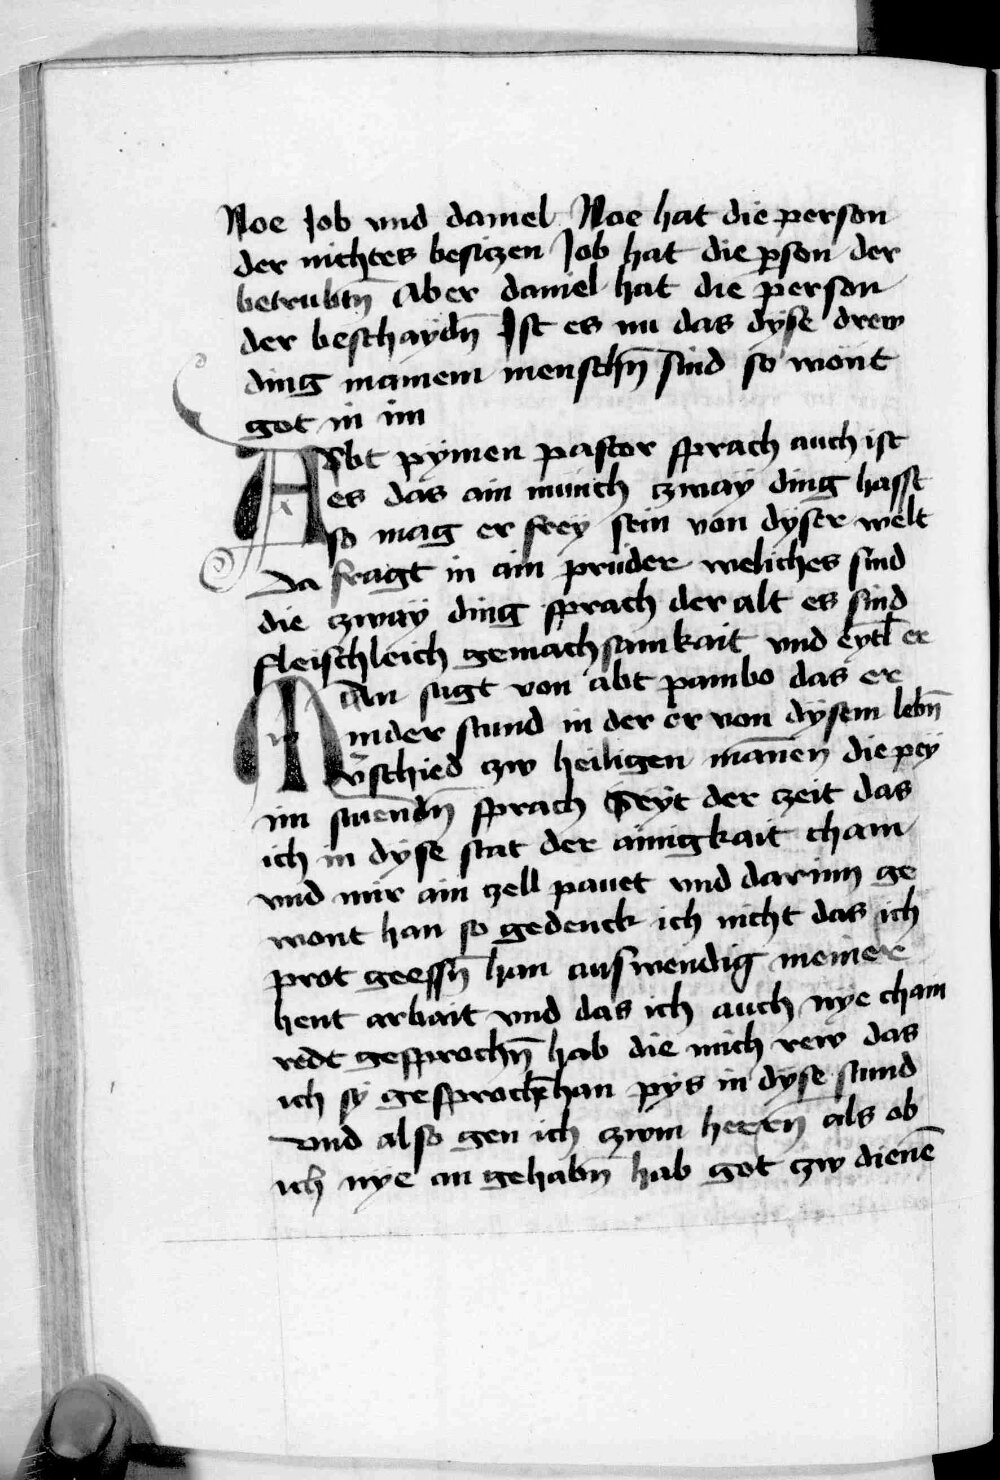 Noe Job vnd daniel Noe hat die person
der nichtes besiczen Job hat die pson der
betrubtn̄ Aber daniel hat die person
der beschaydn̄ Ist es nu das dyse drew
ding in ainem menschn̄ sind so wont
got in im
Abt pymen pastor sprach auch ist
es das ain münch zway ding hasst
so mag er frey sein von dyser welt
Da fragt in ain pruder weliches sind
die zway ding sprach der alt es sind
fleischleich gemachsamkait vnd eytl er
Man sagt von abt pambo das er
in der stund in der er von dysem lebn̄
v̄schied zw heiligen mannen̄ die pey
im stuendn̄ sprach Seyt der zeit das
ich in dyse stat der ainigkait cham
vnd mir ain zell pauet vnd darinn ge
wont han so gedenck ich nicht das ich
prot geessn̄ han auswendig meiner
hent arbait vnd das ich auch nye cham
redt gesprochn̄ hab die mich rew das
ich sy gesprochē han pys in dyse stund
vnd also gen ich zwm herren̄ als ob
ich nye an gehabn̄ hab got zw dienē